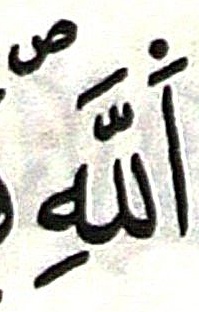 اَللّٰهِ ۖ ص